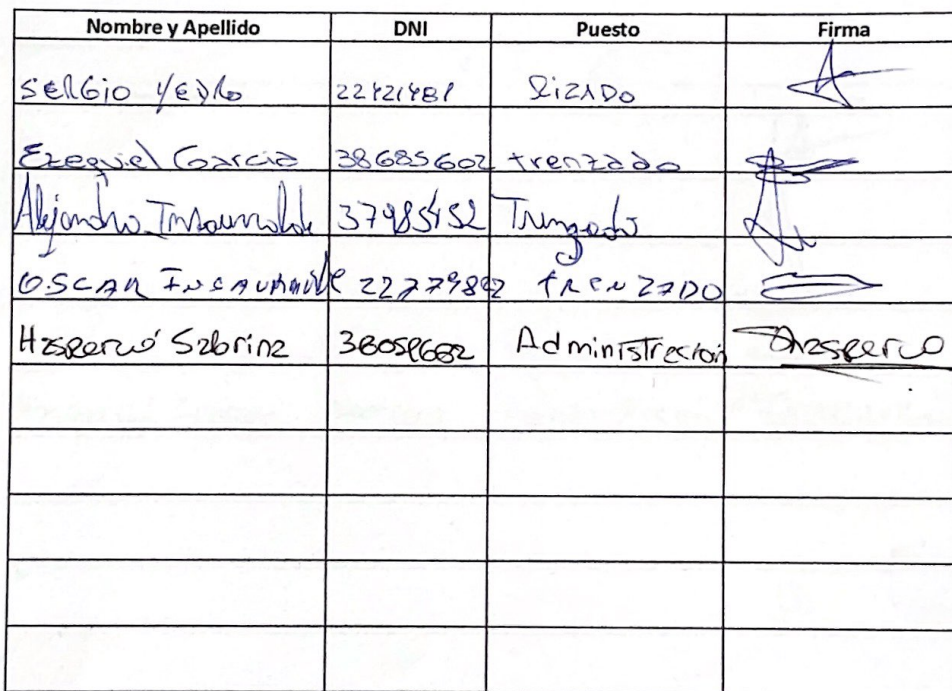 Nombre y Apellido DNI Puesto Firma
SERGIO YEDRO 22421481 RIZADO
Ezequiel Garcia 38685602 trenzado
Alejandro Insaurralde 37985452 Trenzado
OSCAR INSAURRALDE TRENZADO
Sabrina Administración